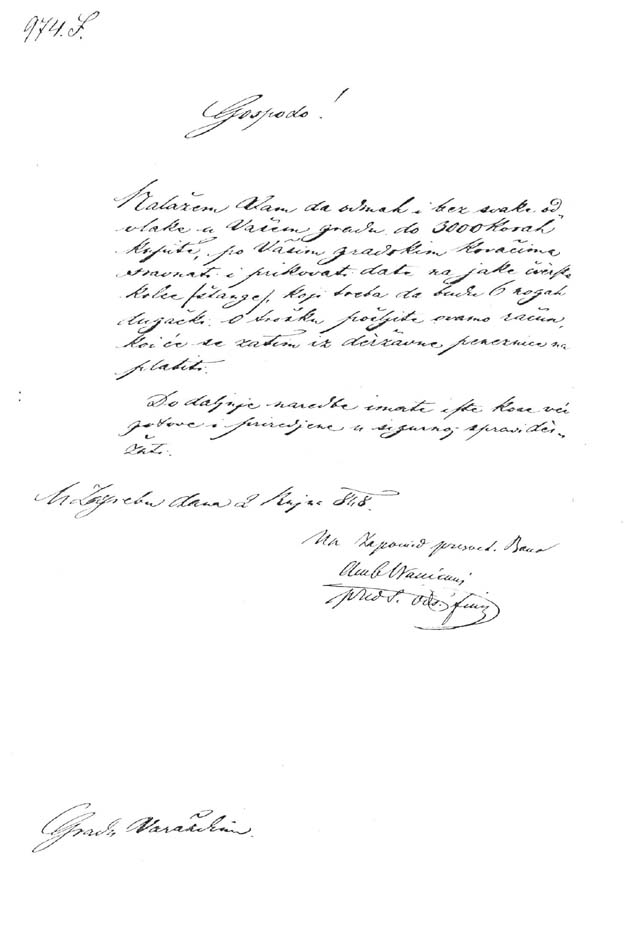 974. S.
Gospodo!
Nalažem Vam da odmah i bez svake od„
vlake u Vašem gradu do 3000 kosah
kupite, po Vašim gradskim kovačima
sravnati i prikovati date na jake čvrste
kolce /štange/, koji treba da budu 6 nogah
dugački. O trošku pošljite ovamo račun,
koi će se zatim iz deržavne peneznice na
platiti.
Do daljnje naredbe imate iste kose već
gotove i priredjene u sigurnoj spravi der„
žati.
U Zagrebu dana 2 Rujna 848.
Na Zapovied presvet. Bana
Amb Vranicani
preds. ods. fin
Gradu Varaždinu.